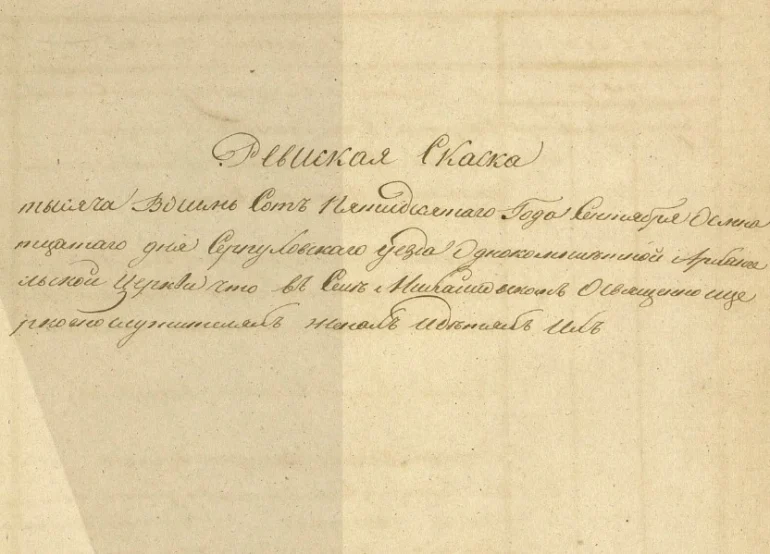 Ревиская Скаска
тысяча Восемь Сотъ Пятидесятаго Года Сентября Осмна
тцатаго дня Серпуховскаго уезда Однокомплѣтной Арханге
льской Церкви что въ Селѣ Михайловскомъ Освященно и це
рковнослужителямъ женамъ идѣтямъ Ихъ